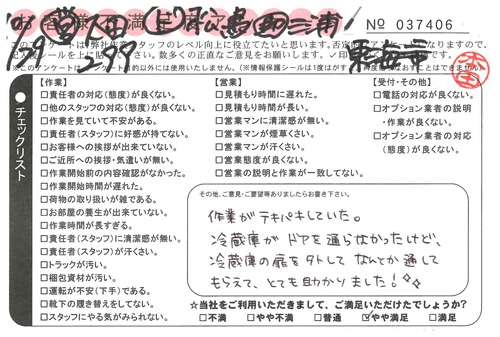 No 037406
このアンケートは弊社作業スタッフのレベル向上に役立てたいと思います。
※このアンケートは、上記目的以外には使用いたしません。
チェックリスト
【作業】
□責任者の対応(態度)が良くない。
□他のスタッフの対応(態度)が良くない。
□作業を見ていて不安がある。
□責任者(スタッフ)に好感が持てない。
□お客様への挨拶が出来ていない。
□ご近所への挨拶・気遣いが無い。
□作業開始前の内容確認がなかった。
□作業開始時間が遅れた。
□荷物の取り扱いが雑である。
□お部屋の養生が出来ていない。
□作業時間が長すぎる。
□責任者(スタッフ)に清潔感が無い。
□責任者(スタッフ)が汗くさい。
□トラックが汚い。
□梱包資材が汚い。
□運転が不安(下手)である。
□靴下の履き替えをしてない。
□スタッフにやる気がみられない。
【営業】
□見積もり時間に遅れた。
□見積もり時間が長い。
□営業マンに清潔感が無い。
□営業マンが煙草くさい。
□営業マンが汗くさい。
□営業態度が良くない。
□営業の説明と作業が一致してない。
【受付・その他】
□電話の対応が良くない。
□オプション業者の説明
・作業が良くない。
□オプション業者の対応
(態度)が良くない。
その他、ご意見・ご要望等ありましたらお書き下さい。
作業がテキパキしていた。
冷蔵庫がドアを通らなかったけど、
冷蔵庫の扉を外してなんとか通して
もらえて、とても助かりました!
☆当社をご利用いただきまして、ご満足いただけたでしょうか?
□不満 □やや不満 □普通 ☑やや満足 □満足